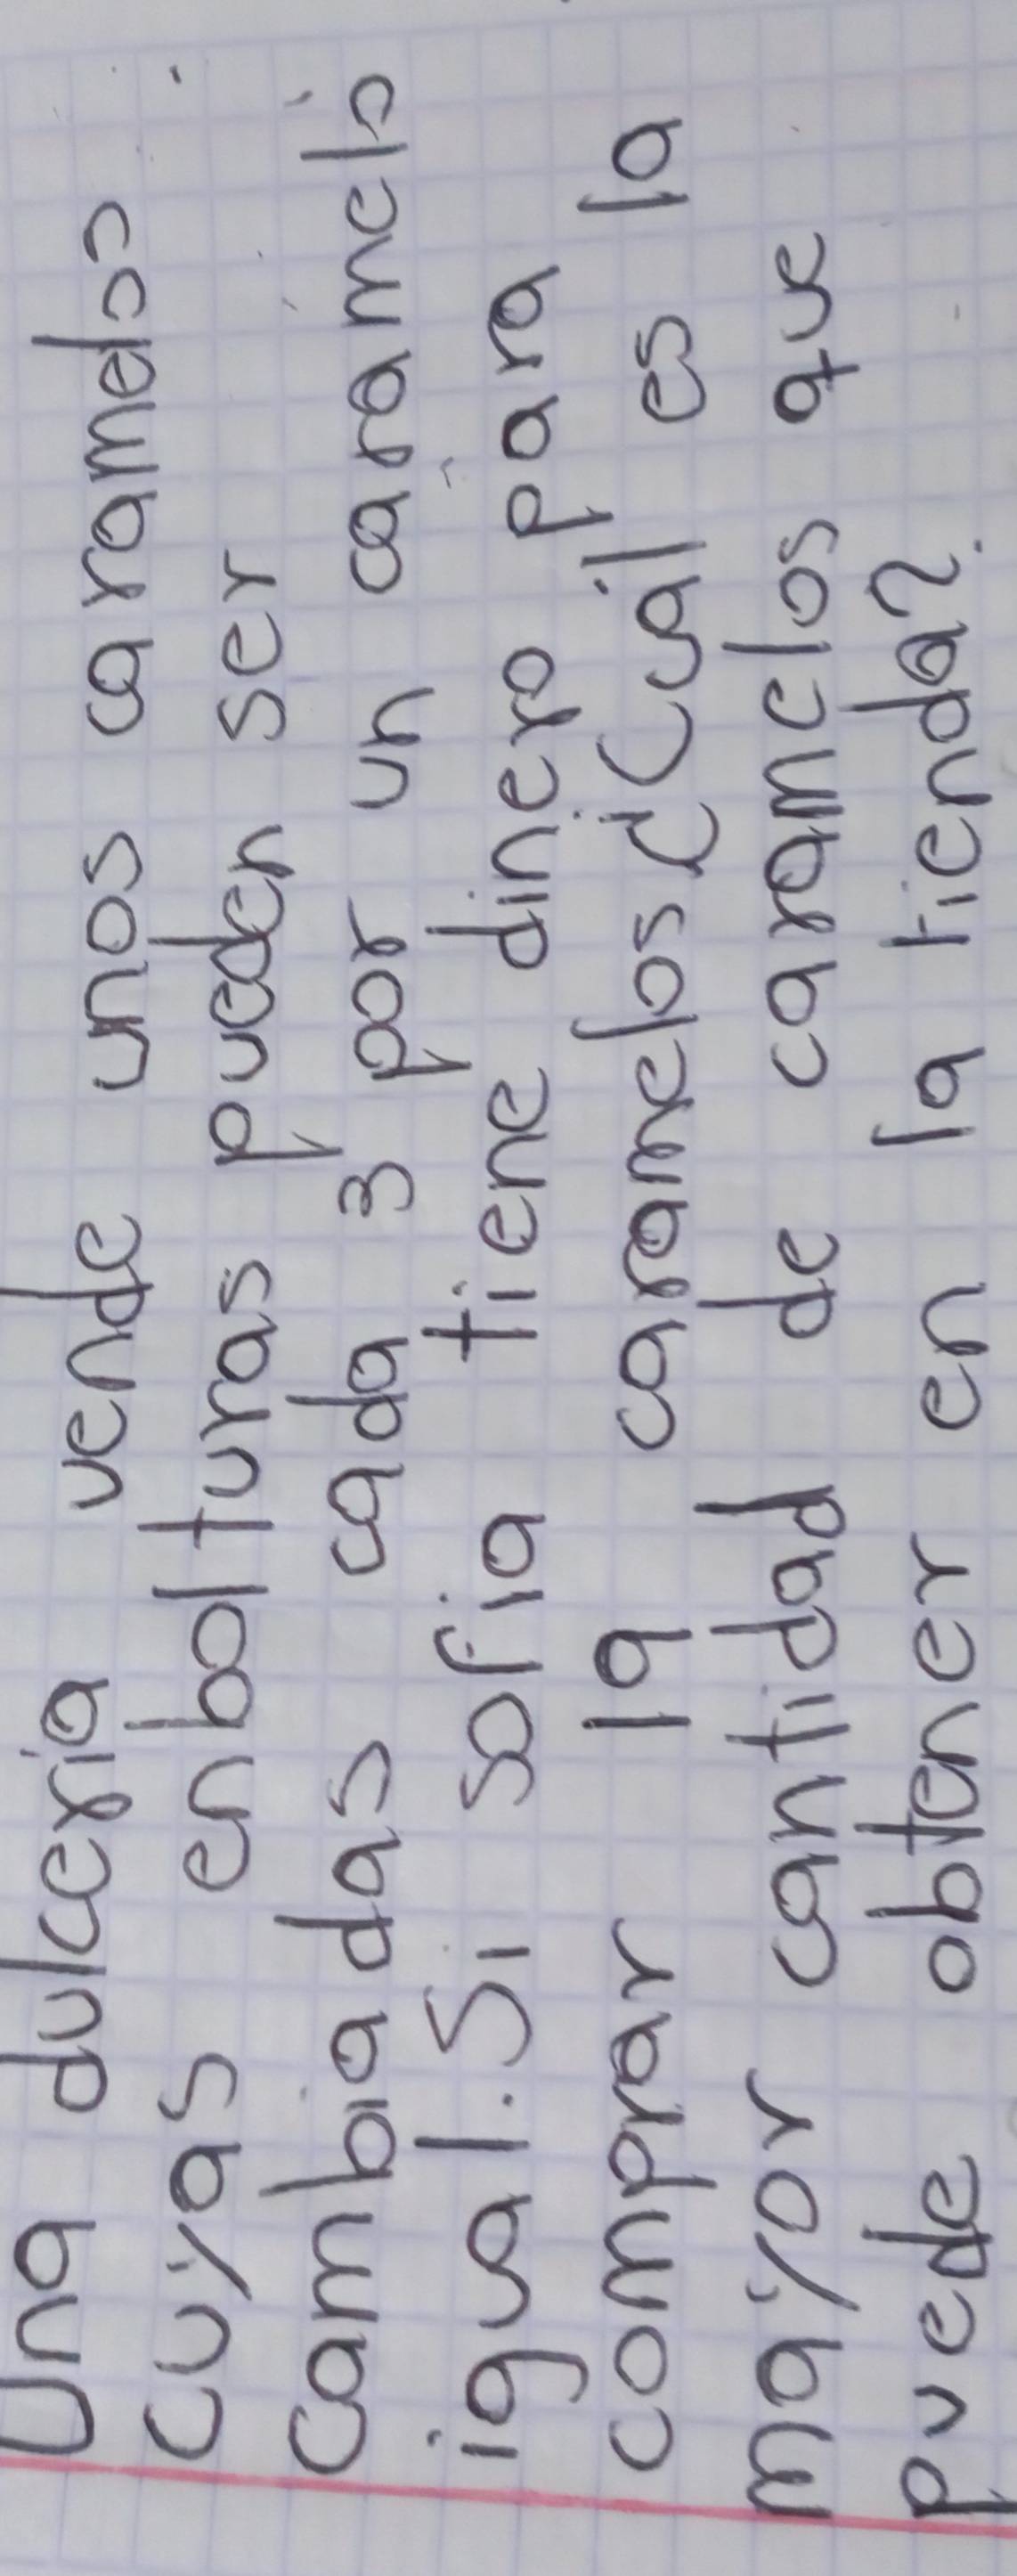 Una dulceria vende unos caramelos
cuyas enbolturas pueden ser
cambiadas cada 3 por un caramelo
igual. Si sofia tiene dinero para
comprar 19 caramelos ¿Cuál es la
mayor cantidad de caramelos que
puede obtener en la tienda?